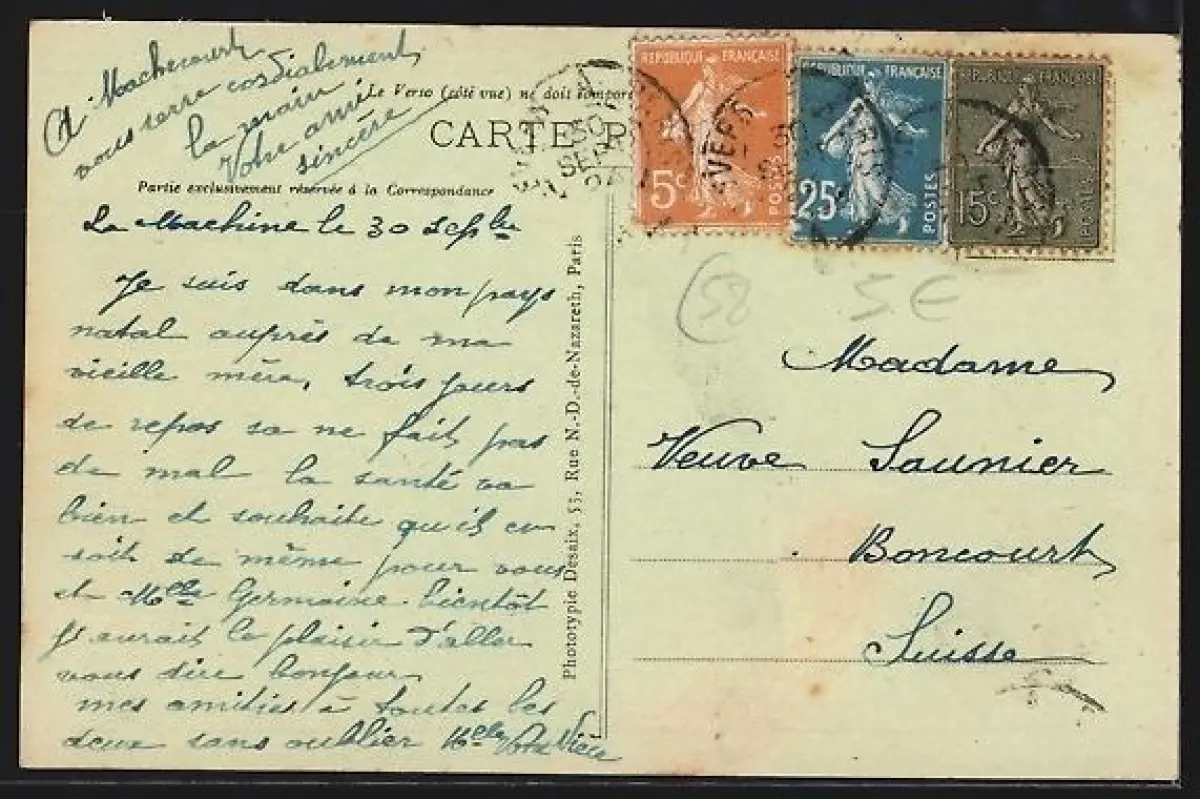 A Machecourt
vous serre cordialement
la main
Votre amie
sincère
Le Verso (côté vue) ne doit comporte
CARTE P
Partie exclusivement réservée à la Correspondance
La Machine le 30 Sepbre
Je suis dans mon pays
natal auprès de ma
vieille mère, trois jours
de repos sa ne fait pas
de mal la santé va
bien et souhaite qu'il en
soit de même pour vous
et Melle Germaine. bientôt
J'aurait le plaisir d'aller
vous dire bonjour
mes amitiés à toutes les
deux sans oublier Melle Votre
Phototypie Desaix, 55, Rue N.-D.-de-Nazareth, Paris
REPUBLIQUE FRANÇAISE
5c
POSTES
REPUBLIQUE FRANÇAISE
25c
POSTES
REPUBLIQUE FRANÇAISE
15c
POSTES
30
SEPT
58
5 €
Madame
Veuve Saunier
Boncourt
Suisse